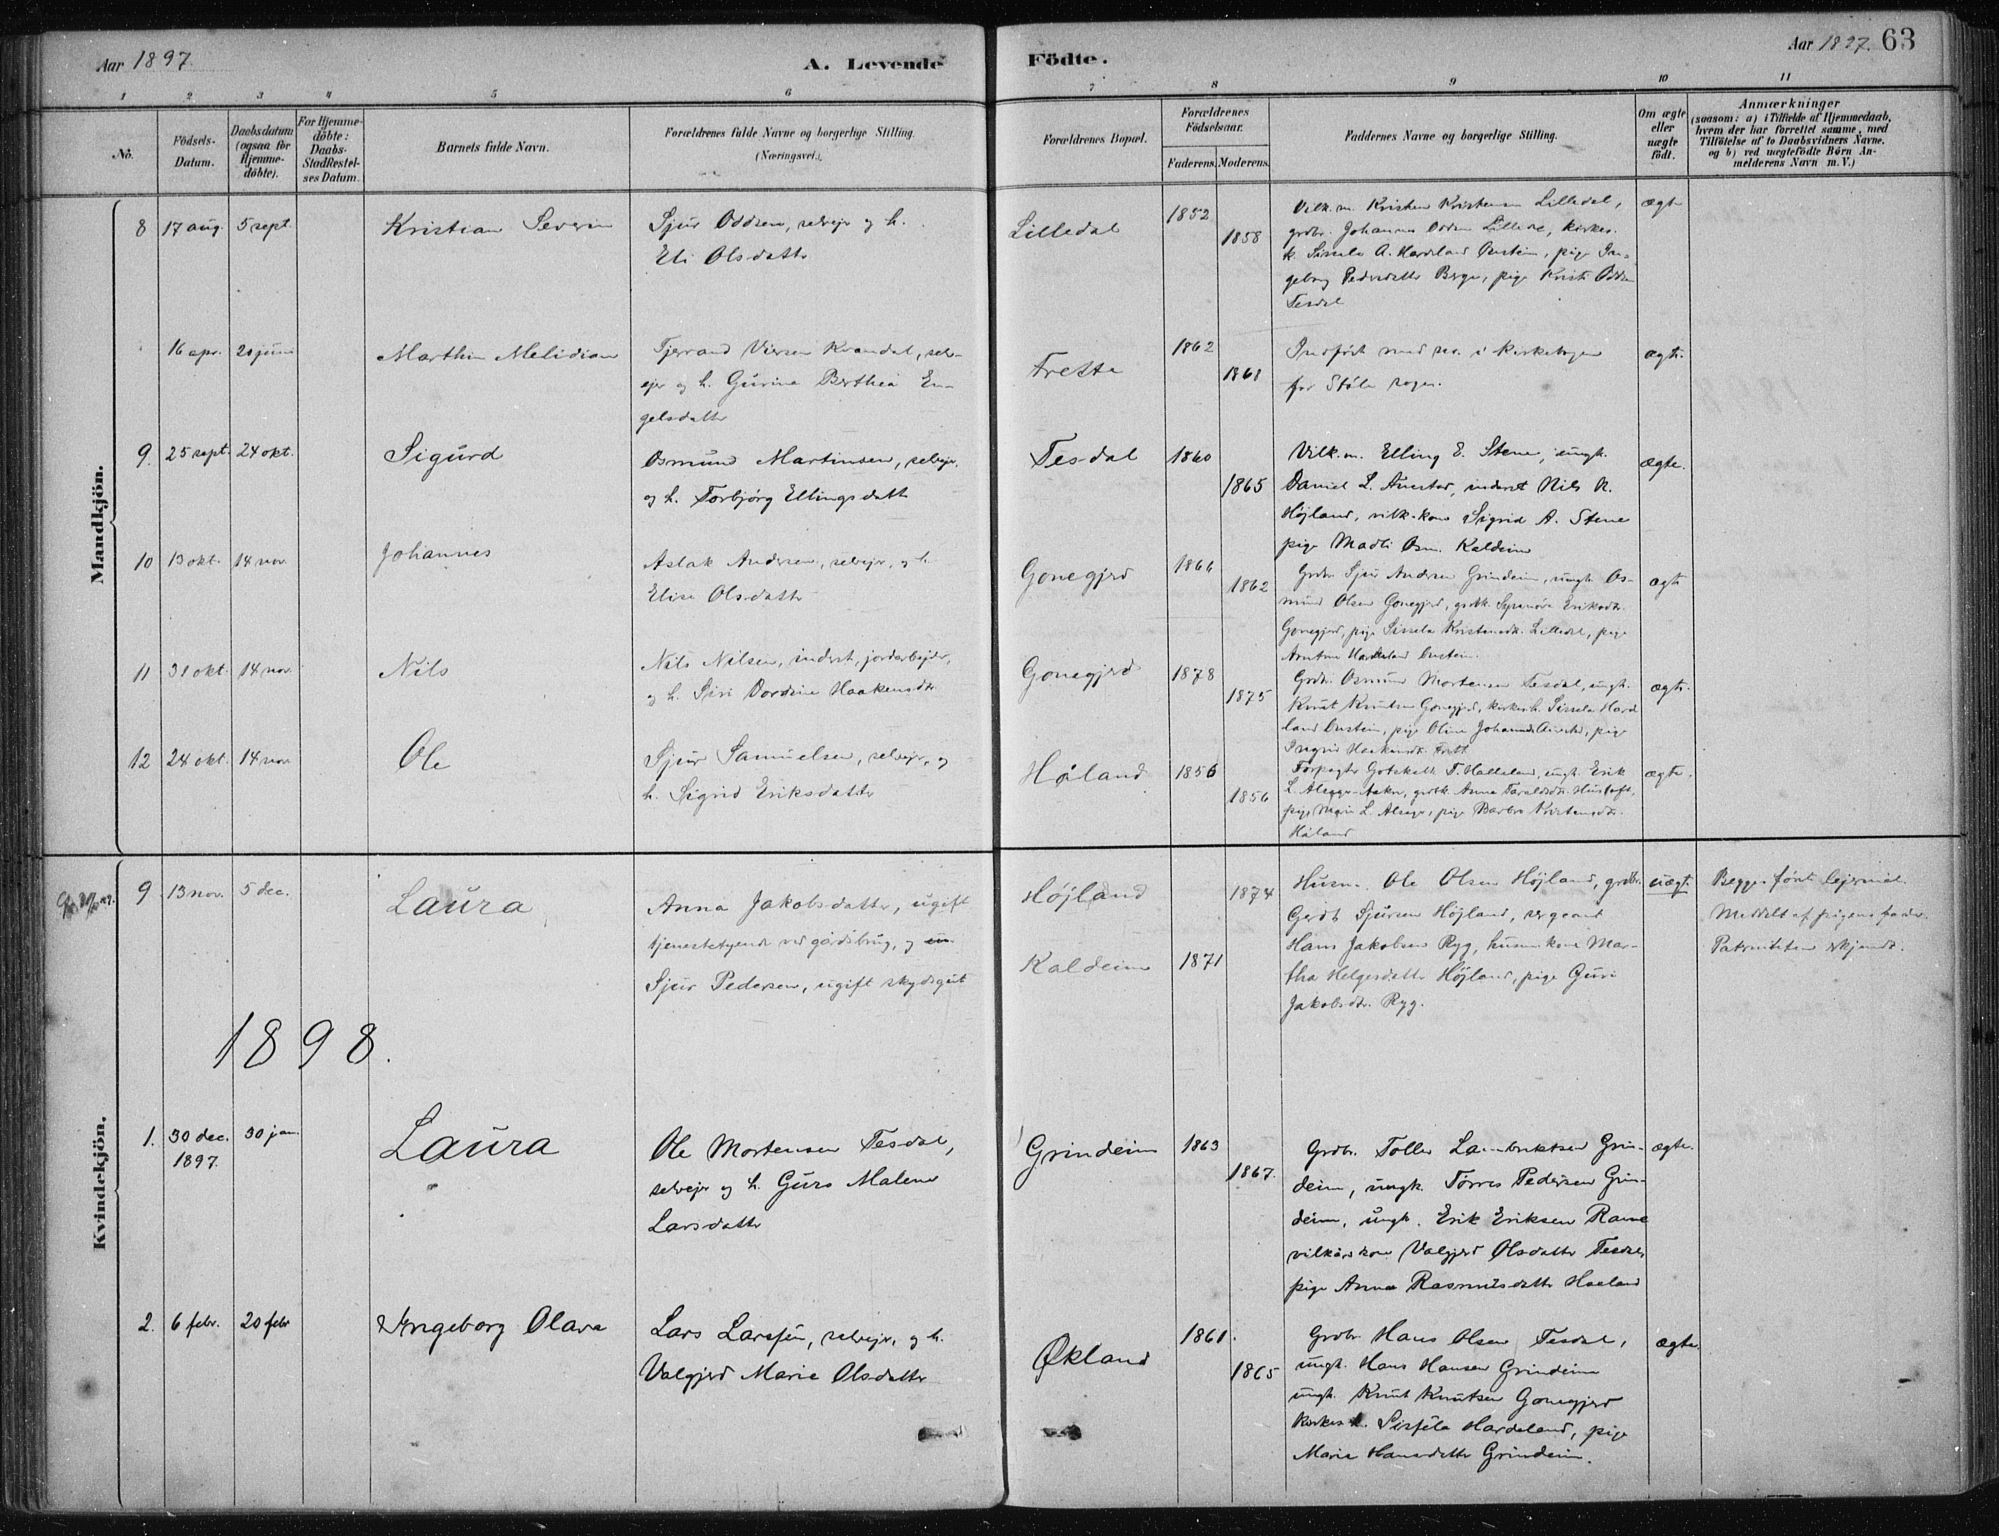 Aar 1897.
A. Levende
Födte.
Aar 1897. 63
1 2 3 4 5 6 7 8 9 10 11
No.
Födsels-
Datum.
Daabsdatum
(ogsaa for
Hjemme-
döbte).
For Hjemme-
döbte:
Daabs-
StadfestelsesDatum.
Barnets fulde Navn.
Forældrenes fulde Navne og borgerlige Stilling.
(Næringsvei.)
Forældrenes Bopæl.
Forældrenes
Födselsaar.
Faderens. Moderens.
Faddernes Navne og borgerlige Stilling.
Om ægte
eller
uægte
født.
Anmærkninger
(saasom: a) i Tilfælde af Hjemmedaab,
hvem der har forrettet samme, med
Tilföielse af to Daabsvidners Navne,
og b) ved uægtefödte Börn An-
melderens Navn m. V.)
Mandkjön.
8 17 aug. 5 sept. Kristian Severin
Sjur Oddsen, selvejer og h.
Eli Olsdatter
Lilledal
1852
1858
Vilk.m. Kristen Kristensen Lilledal,
grdbr. Johannes Lilledal, kirkes.
k. Sissela A. Hardeland Austein, pige In-
geborg Pedersdatter Berge, pige Kristi
Tesdal
ægte
16 apr. 20 juni Marthin Melidian
Tjerand Kvandal, selv-
ejer og h. Gurina Berthea En-
gelsdatter
Frette
1862
1868
Indført med no. i kirkebogen
for Støle sogn.
ægte.
9. 25 sept. 24 okt. Sigurd
Osmund Martinsen, selvejer,
og h. Torbjørg Ellingsdatter
Tesdal
1860
1865
Vilk.m. Elling E. Stene, ungk.
Daniel L. Austad, inderst Nils N.
Højland, vilk.kone Sigrid A. Stene
pige Madli Osm. Kaldeim
ægte.
10 13 okt. 14 nov Johannes
Aslak Andersen, selvejer, og h.
Elise Olsdatter
Gonegjerd
1866
1862
Grdbr. Sjur Andersen Grindeim, ungk. Os-
mund Olsen Gonegjerd, grdbk. Eriksdtr.
Gonegjerd, pige Sissela Kristensdt. Lilledal, pige
Hardeland Austein.
ægte
11 31 okt. 14 nov. Nils
Nils Nilsen, inderst, jordarbejder,
og h. Siri Dordine Haakensdtr.
Gonegjerd
1878
1875
Grdbr. Osmund Mortensen Tesdal, ungk.
Knut Knutsen Gonegjerd, kirkes.k. Sissela Harde
land Austein, pige Oline Johannesd. Austad, pige
Ingrid Haakensdt. Frette
ægte.
12 24 okt. 14 nov Ole
Sjur Samuelsen, selvejer, og
h. Sigrid Eriksdatter
Høiland
1856
1856
Forpagter Gotskalk T. Halleland, ungk. Erik
L. grdbk. Anna Taraldsdtr. Hustoft,
pige Marie L. pige Barbro Kristensdtr.
Høiland
ægte.
Kvindekjön.
9 13 nov. 5 dec. Laura
Anna Jakobsdatter, ugift
tjenestetyende ved gårdsbrug, og
Sjur Pedersen, ugift skydsgut
Højland
Kaldeim
1874
1871
Husm. Ole Olsen Højland, grdbr.
Gerdt Sjursen Højland, sergeant
Hans Jakobsen Ryg, husm.kone Mar-
tha Helgesdatter Højland, pige Guri
Jakobsdtr. Ryg.
uægte.
Begges først lejermål.
Meddelt af pigens fader.
Paterniteten erkjendt.
1898.
1. 30 dec. 1897. 30 jan. Laura
Ole Mortensen Tesdal,
selvejer og h. Guro Malene
Larsdatter
Grindeim
1863
1867.
Grdbr. Tollev Lambrektsen Grin-
deim, ungk. Tørres Pedersen Grin-
deim, ungk. Erik Eriksen Rame
vilkårskone Valgjerd Olsdatter Tesdal,
pige Anna Rasmusdatter Haaland
ægte.
2. 6 febr. 20 febr Ingeborg Olava
Lars Larssen, selvejer, og h.
Valgjerd Marie Olsdatter
Økland
1861.
1865
Grdbr Hans Olsen Tesdal,
ungk. Hans Hansen Grindeim
ungk. Knut Knutsen Gonegjerd
kirkes.k. Sisséla Hardeland, pige
Marie Hansdatter Grindeim.
ægte.